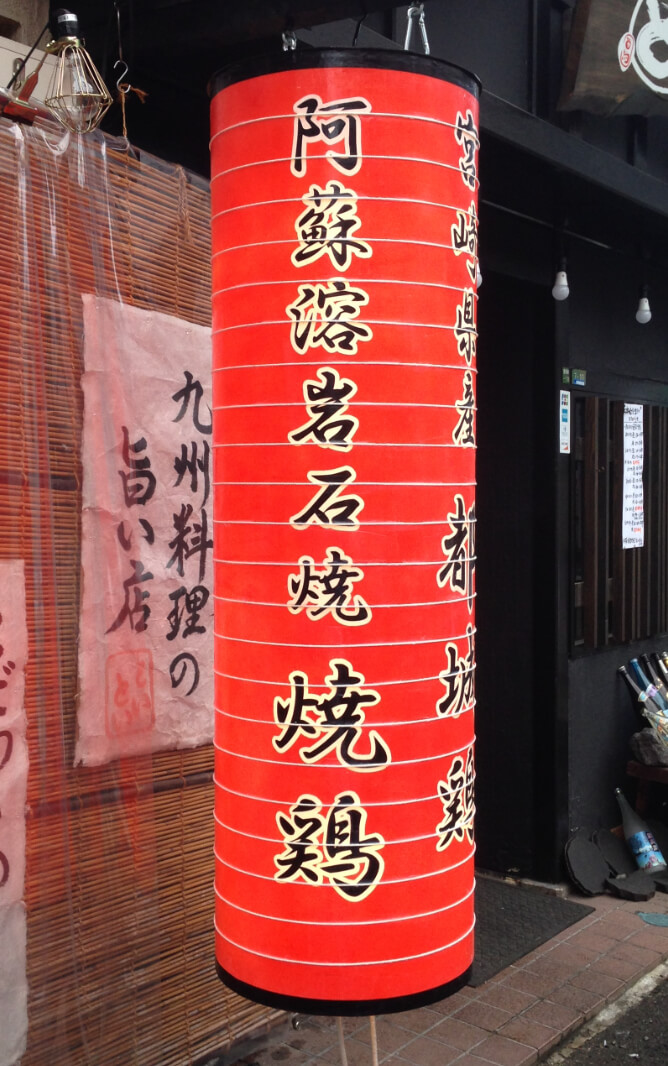 宮崎県産 都城鶏
阿蘇溶岩石焼 焼鶏
九州料理の
旨い店